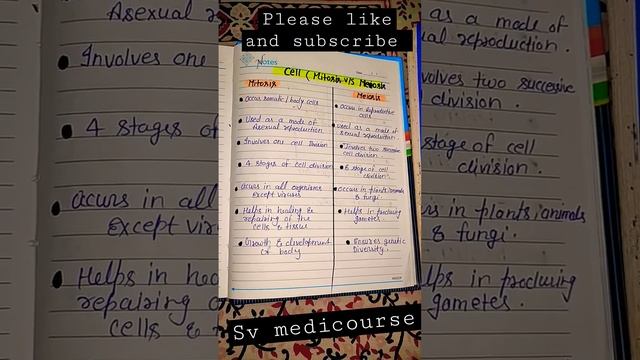 Please like
and subscribe
Notes
Cell (Mitosis V/S Meiosis
Mitosis
Occurs somatic/body cells
Used as a mode of
asexual reproduction
Involves one cell division
4 stages of cell division
Occurs in all organisms
Except viruses
Helps in healing &
repairing of the
cells & tissue
Growth & development
of body
Meiosis
Occurs in Reproductive
cells
Used as a mode of
sexual reproduction
Involves two successive
cell division
stage of cell
division
Occurs in plants/animals
& fungi
Helps in producing
gametes
Ensures genetic
Diversity
Sv medicourse
Asexual
Involves one
4 stages of
Occurs in all
Except
Helps in
repairing
cells &
as a mode of
reproduction.
two successive
division.
stage of cell
division.
in plants/animals
& fungi.
in producing
gametes.